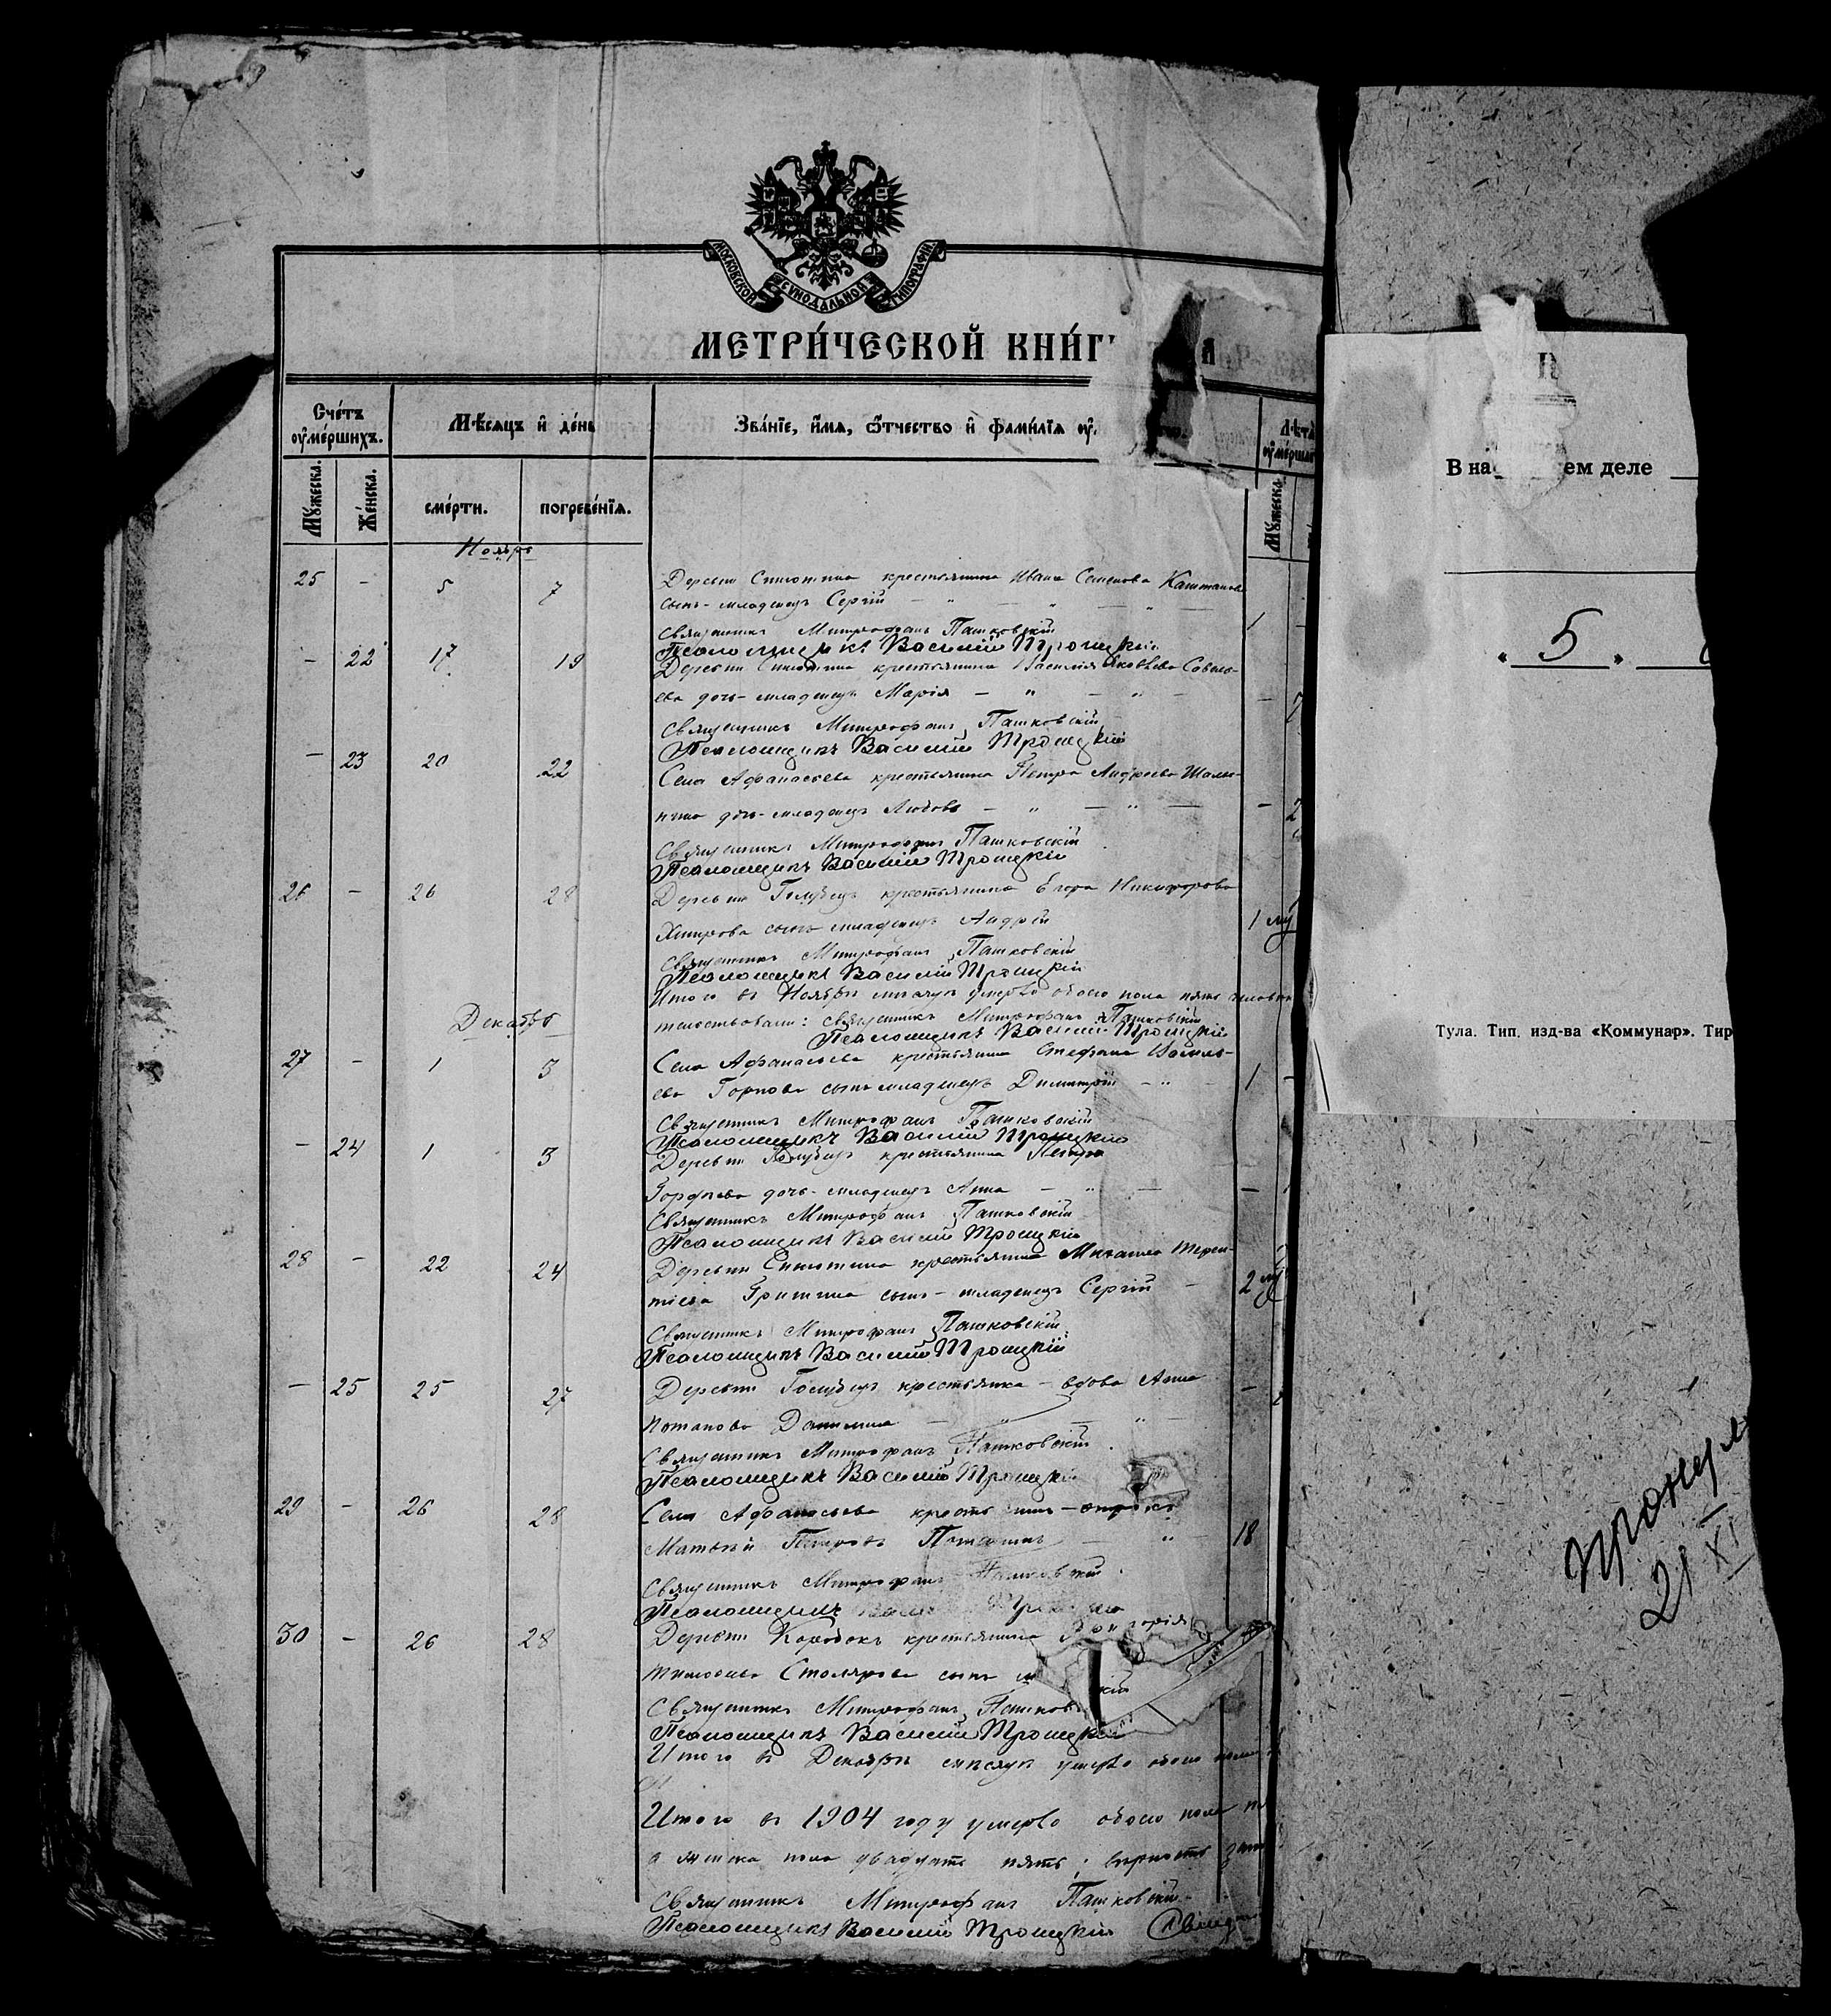 МОСКОВСКОЙ СѴНОДАЛЬНОЙ ТИПОГРАФІИ
МЕТРИ́ЧЕСКОЙ КНИ́Г
Сче́тъ оу҆ме́ршихъ.
Мѣ́сяцъ и҆ де́нь
Зва́нїе, и҆́мя, ѻ҆́тчество и҆ фами́лїя оу҆.
Лѣта оу҆ме́рша
Мꙋ́жеска.
Же́нска.
сме́рти.
погребе́нїя.
Мꙋ́жеска
Ноябрь
25 - 5 7 Деревни Синютина крестьянина Ивана Семенова Каштанова
сынъ-младенецъ Сергій — „ — „ — „ — 1 -
Священникъ Митрофанъ Пашковскій
Псаломщикъ Василій Троицкій
- 22 17 19 Деревни Синютина крестьянина Василія Яковлева Соволь-
ева дочь-младенецъ Марія — „ — „ — -
Священникъ Митрофанъ Пашковскій
Псаломщикъ Василій Троицкій
- 23 20 22 Села Афанасьева крестьянина Петра Андреева Шалы-
гина дочь-младенецъ Любовь — „ — „ — - 2
Священникъ Митрофанъ Пашковскій
Псаломщикъ Василій Троицкій
26 - 26 28 Деревни Голубецъ крестьянина Егора Никифорова
сынъ младенецъ Андрей 1
Священникъ Митрофанъ Пашковскій
Псаломщикъ Василій Троицкій
Итого въ Ноябрѣ мѣсяцѣ умерло обоего пола пять человѣк
Декабрь
тельствовали: священникъ Митрофанъ Пашковскій
Псаломщикъ Василій Троицкій
27 - 1 3 Села Афанасьева крестьянина Стефана Василь-
ева Горлова сынъ младенецъ Димитрій — „ — 1 -
Священникъ Митрофанъ Пашковскій
Псаломщикъ Василій Троицкій
- 24 1 3 Деревни Голубецъ крестьянина Петра
Гордѣева дочь-младенецъ Анна — „ — -
Священникъ Митрофанъ Пашковскій
Псаломщикъ Василій Троицкій
28 - 22 24 Деревни Синютина крестьянина Михаила Терен-
тіева Гришина сынъ-младенецъ Сергій - 2
Священникъ Митрофанъ Пашковскій
Псаломщикъ Василій Троицкій
- 25 25 27 Деревни Голубецъ крестьянка-вдова Анна -
Потапова Данилина — „ — „
Священникъ Митрофанъ Пашковскій
Псаломщикъ Василій Троицкій
29 - 26 28 Села Афанасьева крестьянинъ-отрокъ
Матвѣй Петровъ — „ 18
Священникъ Митрофанъ Пашковскій
Псаломщикъ
30 - 26 28 Деревни Коробокъ крестьянина
Тимоѳеева Столярова сынъ
Священникъ Митрофанъ Пашков
Псаломщикъ Василій Троицкій
Итого въ Декабрѣ мѣсяцѣ умерло обоего пола
Итого въ 1904 году умерло обоего пола
а женска пола двадцать пять; вѣрность
Священникъ Митрофанъ Пашковскій
Псаломщикъ Василій Троицкій
В на ем деле
« 5 »
Тула. Тип. изд-ва «Коммунар». Тир
21 XI